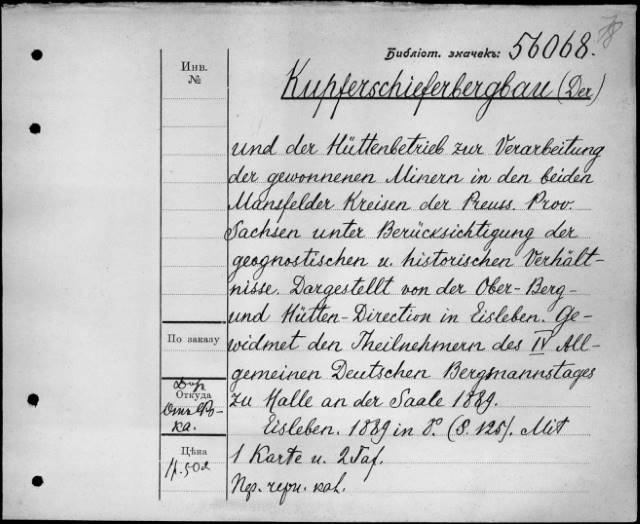 Библіот. значекъ: 56068.
Инв.
№
Kupferschieferbergbau (Der)
und der Hüttenbetrieb zur Verarbeitung
der gewonnenen Minern in den beiden
Mansfelder Kreisen der Preuss. Prov.
Sachsen unter Berücksichtigung der
geognostischen u. historischen Verhält-
nisse. Dargestellt von der Ober-Berg-
und Hütten-Direction in Eisleben. Ge-
По заказу
widmet den Theilnehmern des IV All-
gemeinen Deutschen Bergmannstages
Откуда
zu Halle an der Saale 1889.
Eisleben. 1889 in 8º. (S. 125). Mit
Цѣна
1 Karte u. 2 Taf.